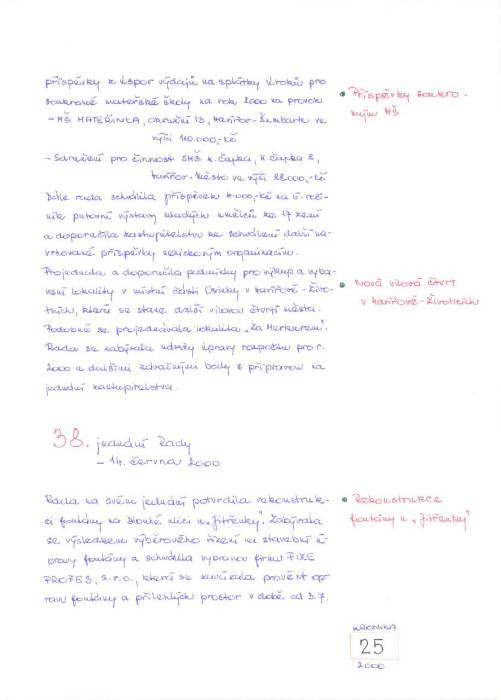 příspěvky z úspor výdajů na splátky úroků pro
soukromé mateřské školy na rok 2000 na provoz
– MŠ MATEŘINKA, oranžní 13, Havířov-Šumbark ve
výši 140.000,-kč
– Sdružení pro činnost SMŠ K. Čapka, K. Čapka 8,
Havířov-Město ve výši 28.000,-kč
Dále rada schválila příspěvek 4.000,-kč na II. roč-
ník putovní výstavy mladých umělců ze 17 zemí
a doporučila zastupitelstvu ke schválení další na-
vrhované příspěvky neziskovým organizacím.
Projednala a doporučila podmínky pro výkup a vyba-
vení lokality v místní části Osinky v Havířově-Živo-
ticích, která se stane další vilovou čtvrtí města.
Podobně se projednávala lokalita „Za Merkurem".
Rada se zabývala návrhy úpravy rozpočtu pro r.
2000 a dalšími závažnými body k přípravám na
jednání zastupitelstva.
Příspěvky soukro-
mým MŠ
Nová vilová čtvrť
v Havířově-Životicích
38. jednání Rady
– 14. června 2000
Rada na svém jednání potvrdila rekonstruk-
ci fontány na Dlouhé ulici u „Jitřenky". Zabývala
se výsledkem výběrového řízení na stavební ú-
pravy fontány a schválila vybranou firmu FIXE
PROFES, s.r.o., která se zavázala provést op-
ravu fontány a přilehlých prostor v době od 3.7.
Rekonstrukce
fontány u „Jitřenky"
KRONIKA
25
2000